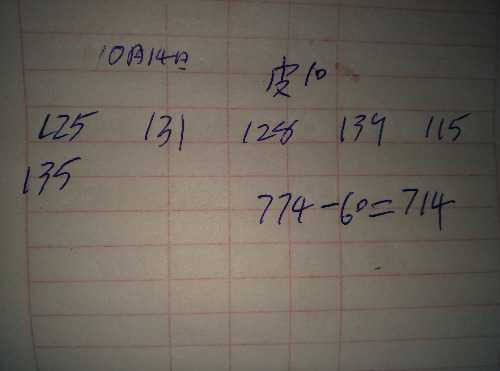 10月14日
皮10
125 131 128 139 115
135
774-60=714